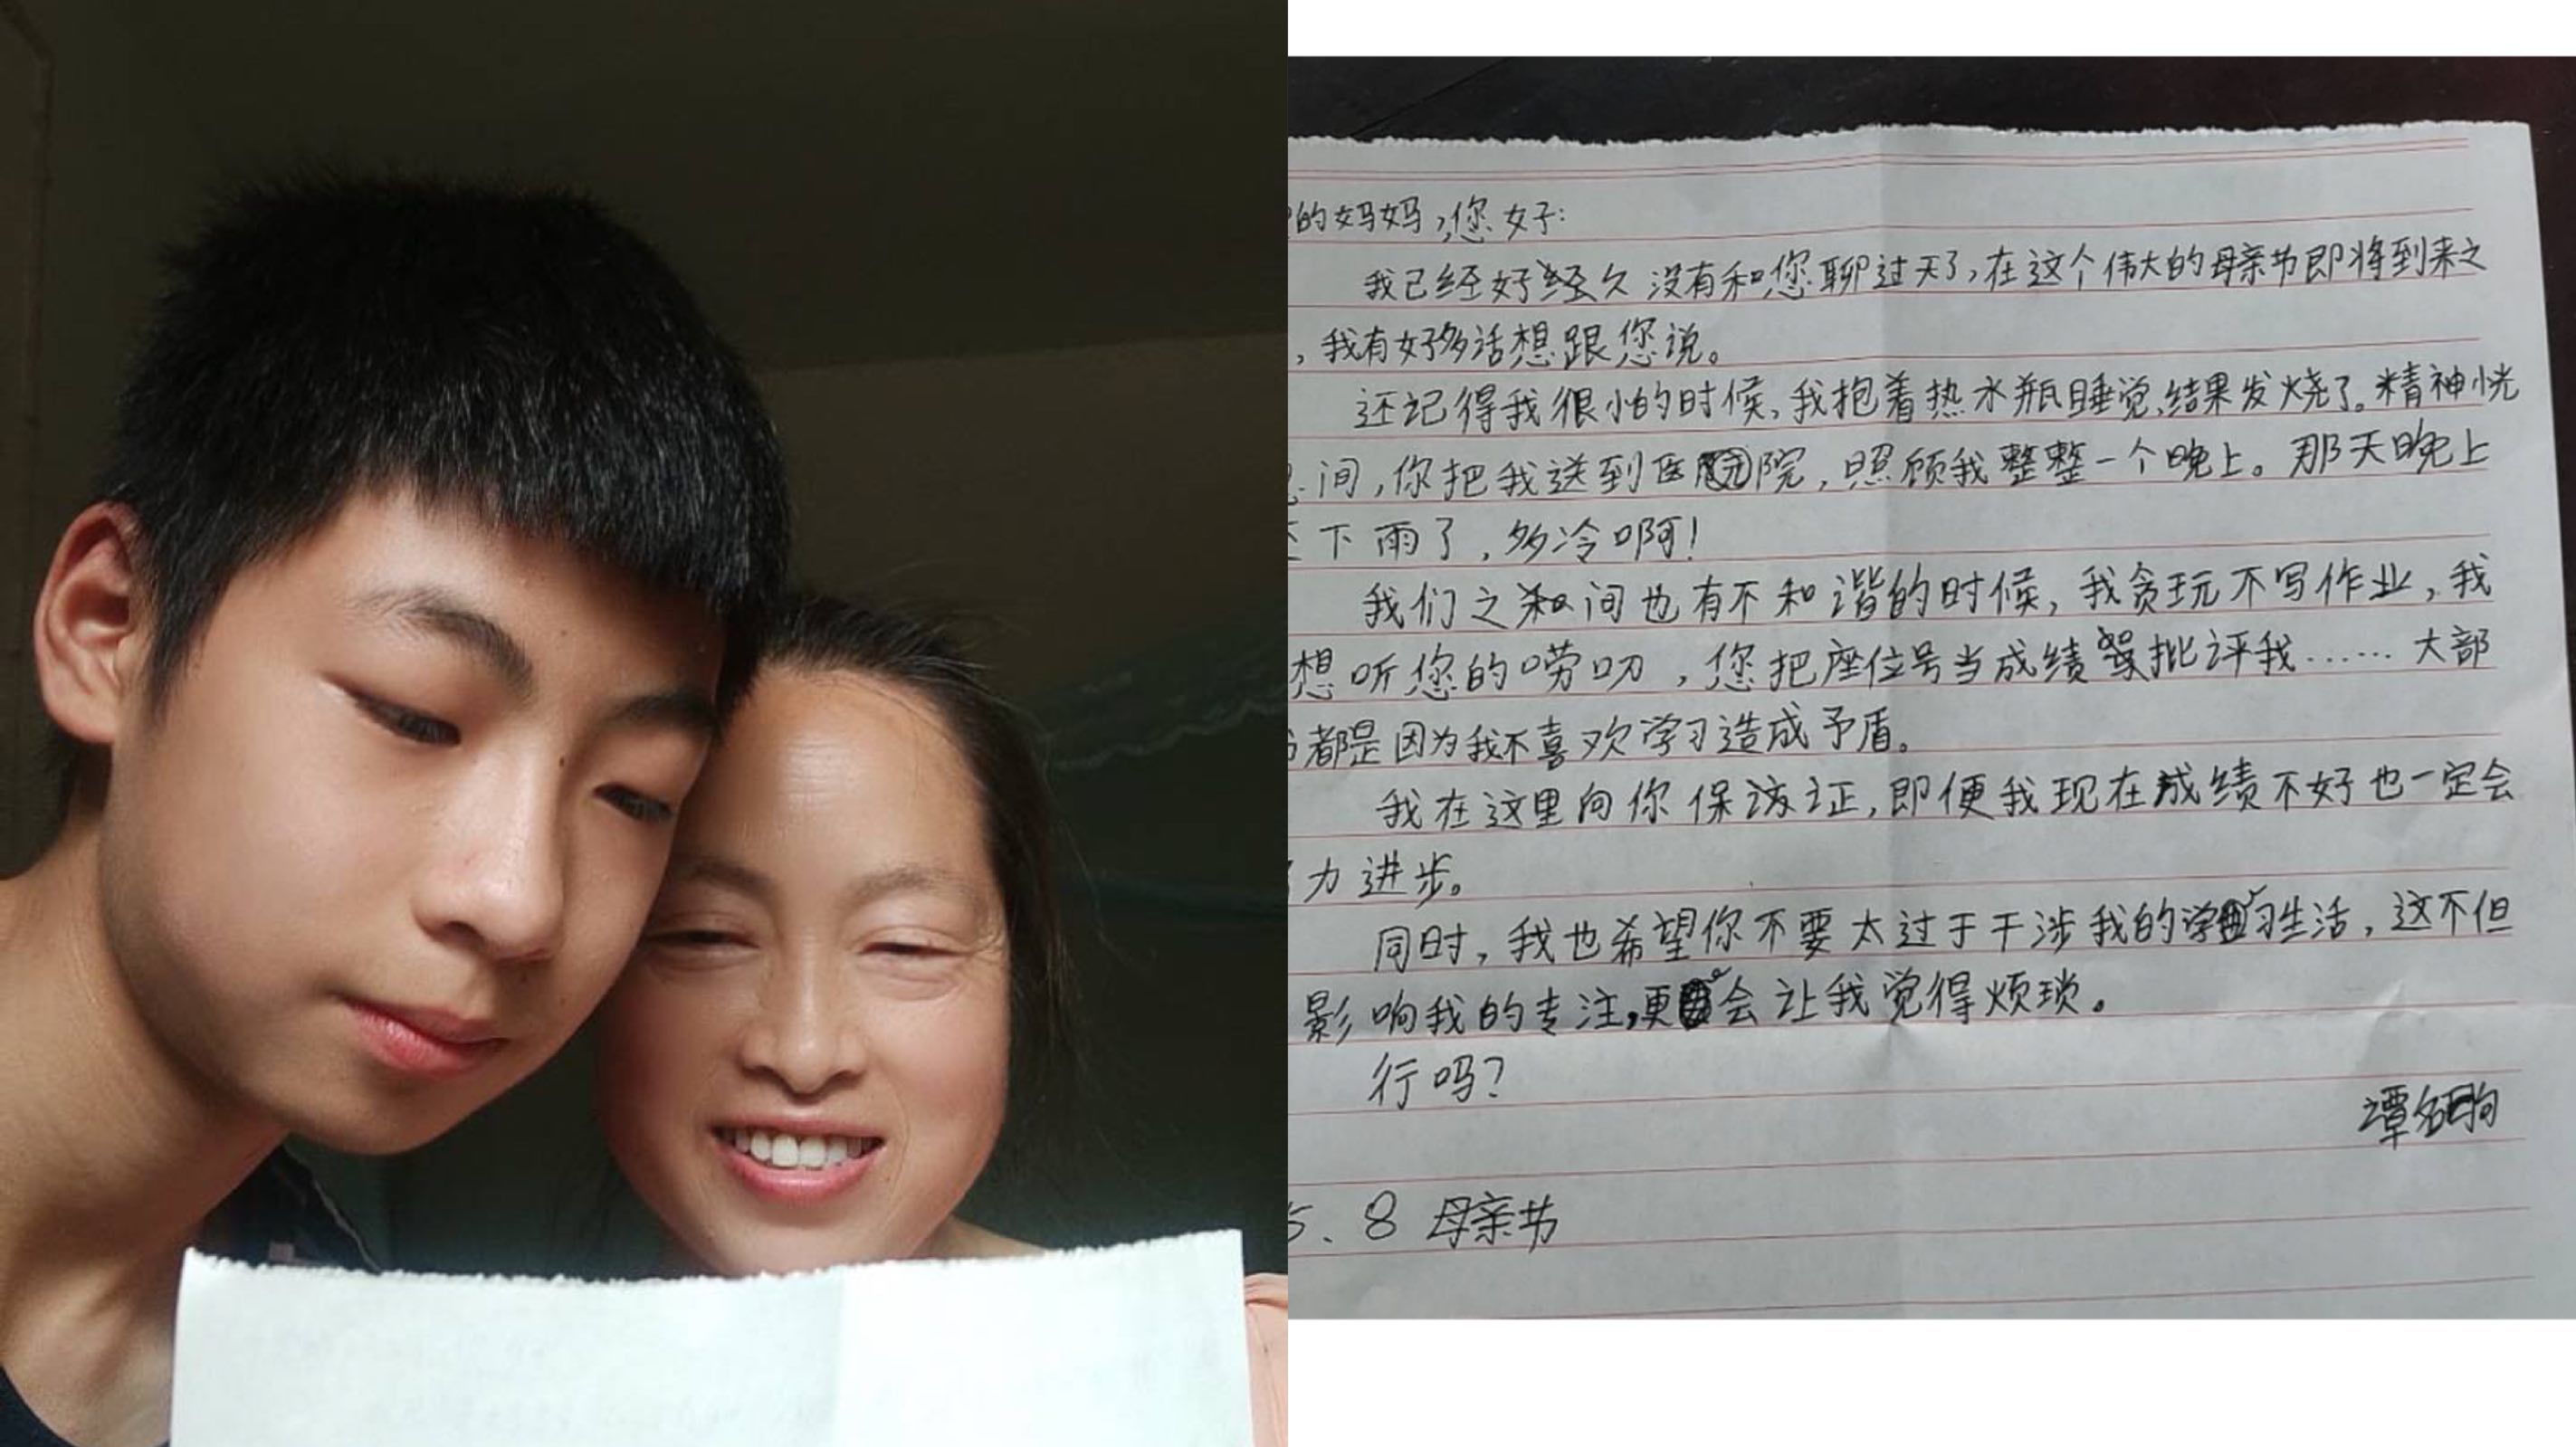 的妈妈,您好:
我已经好久没有和您聊过天了,在这个伟大的母亲节即将到来之
,我有好多话想跟您说。
还记得我很小的时候,我抱着热水瓶睡觉,结果发烧了。精神恍
间,你把我送到医院,照顾我整整一个晚上。那天晚上
下雨了,多冷啊!
我们之间也有不和谐的时候,我贪玩不写作业,我
想听您的唠叨,您把座位号当成绩批评我……大部
都是因为我不喜欢学习造成予盾。
我在这里向你保证,即便我现在成绩不好也一定会
力进步。
同时,我也希望你不要太过于干涉我的学习生活,这不但
影响我的专注,更会让我觉得烦琐。
行吗?
谭
5.8 母亲节